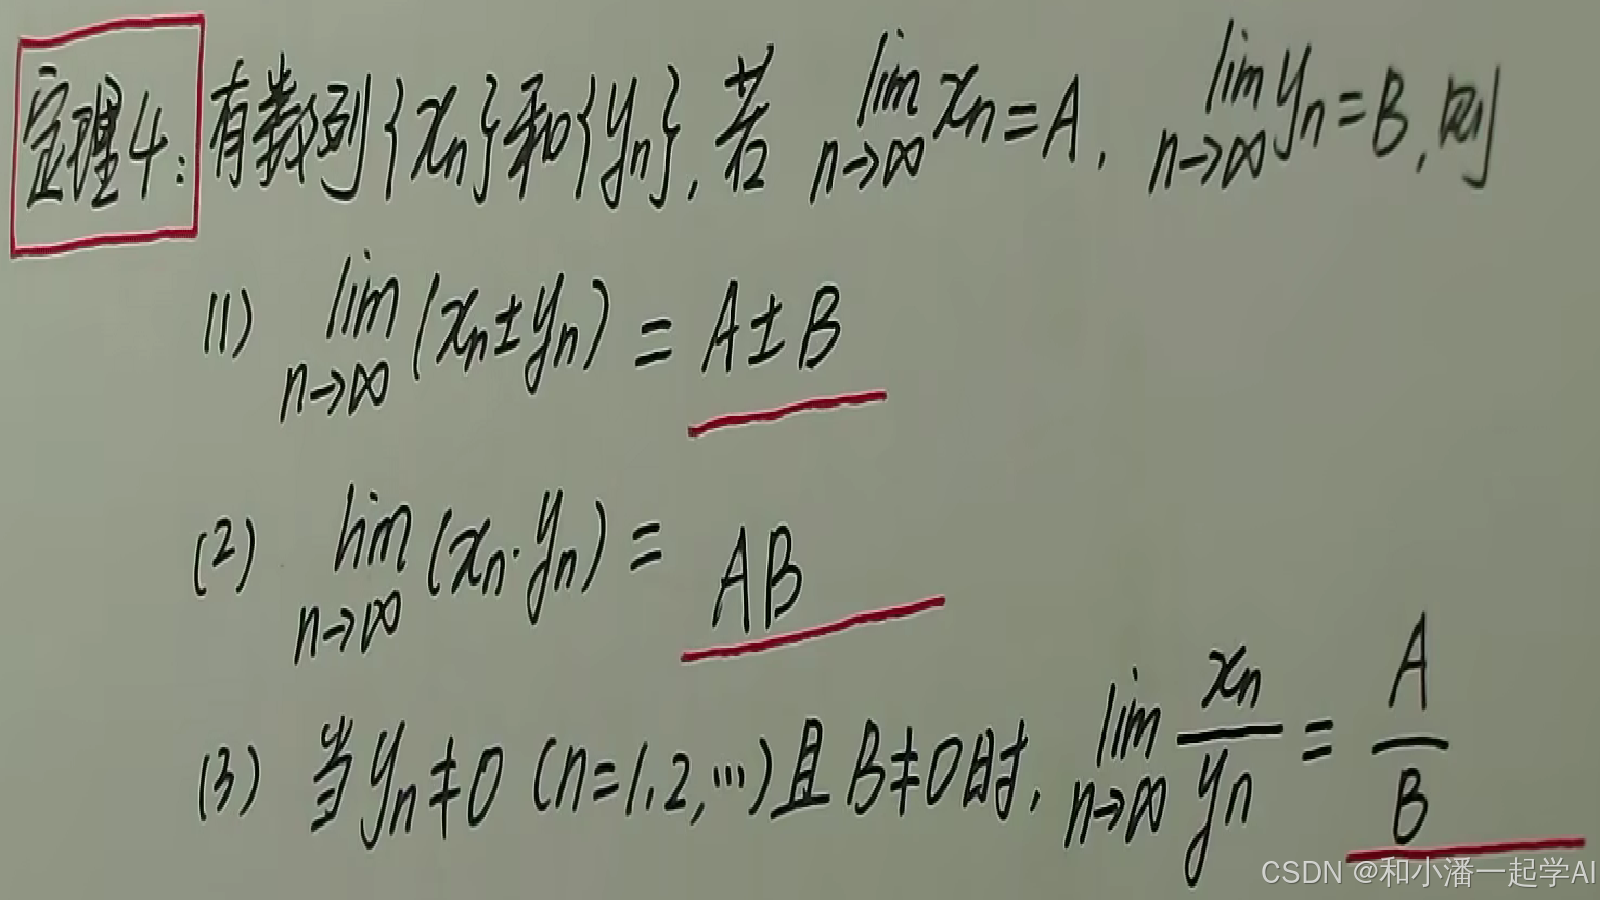 定理4: 有数列{xn}和{yn}, 若 lim n→∞ xn=A, lim n→∞ yn=B, 则
(1) lim n→∞ (xn±yn) = A±B
(2) lim n→∞ (xn·yn) = AB
(3) 当yn≠0 (n=1,2,…)且B≠0时, lim n→∞ xn/yn = A/B
CSDN @和小潘一起学AI